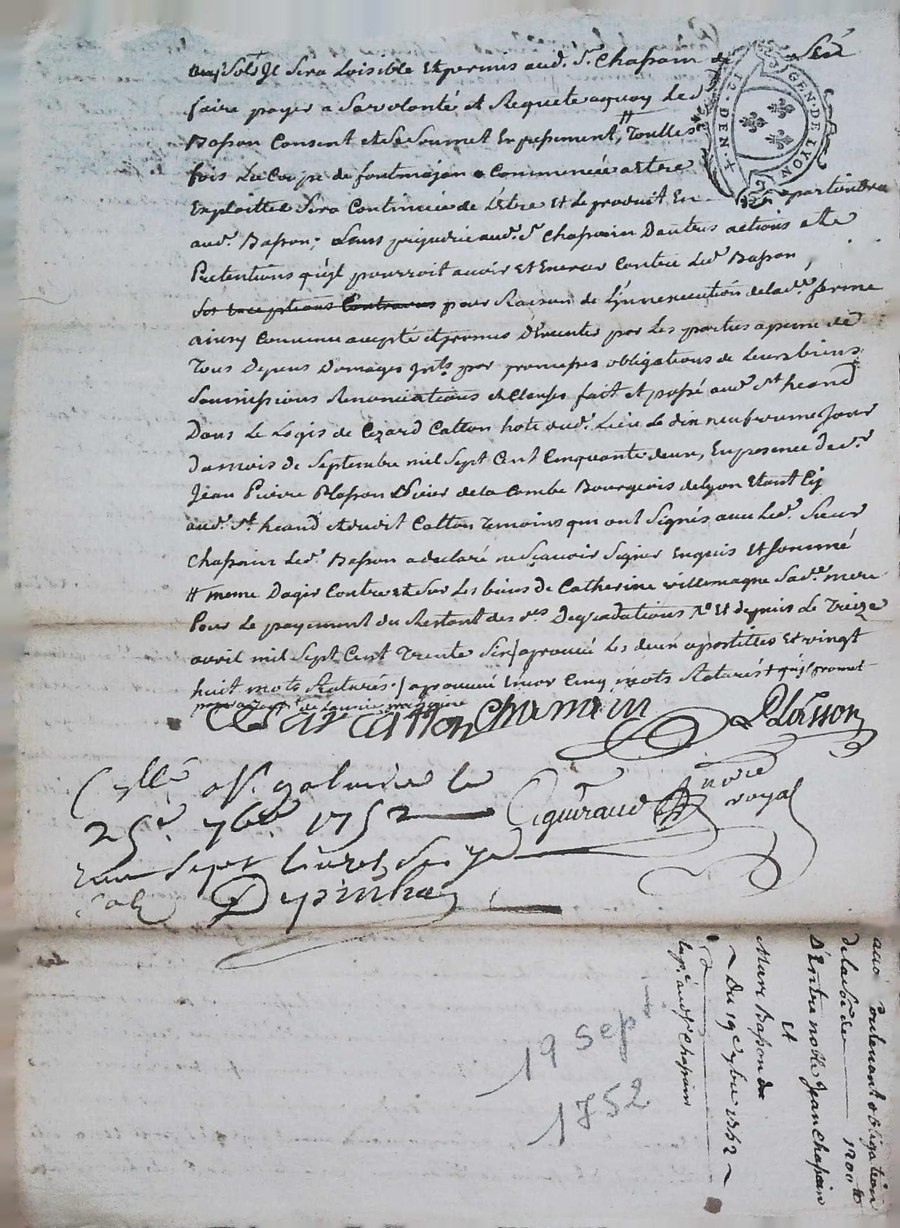 Sols Il Sera Loisible Et permis aud. Sr. Chapoin de Se
faire payer a Sa volonté et Requete aquoy led.
Basson Consent et Se Soumet Expressement, # Touttes
fois La Coupe de fontmajan a Commencée a Etre
Exploittée Sera Continuée de L'être Et le produit En apartiendra
aud. Basson; Sans prejudice aud. Sr. Chapoin Dautres actions et
Pretentions qu'il pourroit avoir Et Exercer Contre Led. Basson,
Ses exceptions Contraires pour Raison de L'innexecution de lad. ferme
ainsy Convenu accepté et promis D'Executer par Les parties a peine de
Tous Depens Domages Ints. par promesses obligations de Leurs biens
Soumissions Renonciations et Clauses fait et passé aud. St. heand
Dans Le Logis de Cezard Catton hote dud. Lieu Le dix neufvieme Jour
Du mois de Septembre mil Sept Cent Cinquante deux, En presence de Sr.
Jean Pierre Plasson Sieur de la Combe Bourgeois de Lyon Etant Cy
aud. St. heand et dudit Catton Temoins qui ont Signés avec Led. Sieur
Chapoin Led. Basson a declaré ne Sçavoir Signer Enquis Et Sommé
# meme Dagir Contre et Sur Les biens de Catherine villemagne Sad. mere
Pour Le payement du Restant des d. Degradations Et depuis Le Treize
avril mil Sept Cent Trente Six / aprouvé Les deux apostilles Et vingt
huit mots Raturés. / aprouvé Encor Cinq mots Raturés + qu'il promet
Cesar Catton Chapoin Plasson
Cllé a St. galmier le
25e. 7bre 1752
Reçu Sept livres Seize
Sols Depinhac
Eiguiraud Nore royal
GEN. DE LYON
DEN
19 Sept
1752
acte Contenant obligation
de la somme de 1200 #
D'Entre notte Jean Chapoin
Et
Marc Basson du
~ Du 19e 7bre 1752 ~
Exp. aud. Sr. Chapoin